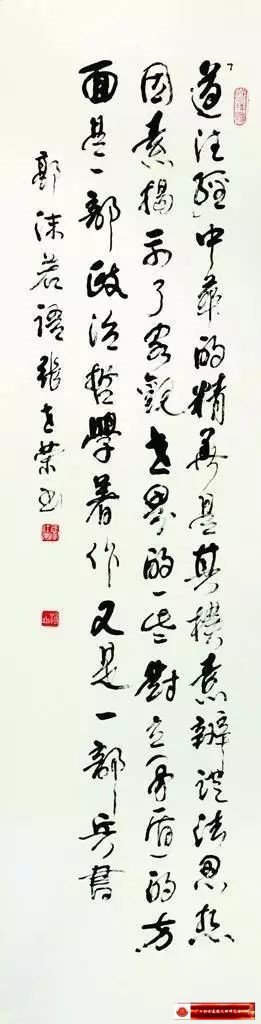 「道德經」中華的精華是其樸素辯證法思想
因素揭示了客觀世界的一些對立（矛盾）的方
面是一部政治哲學著作又是一部兵書
郭沫若語張世榮书